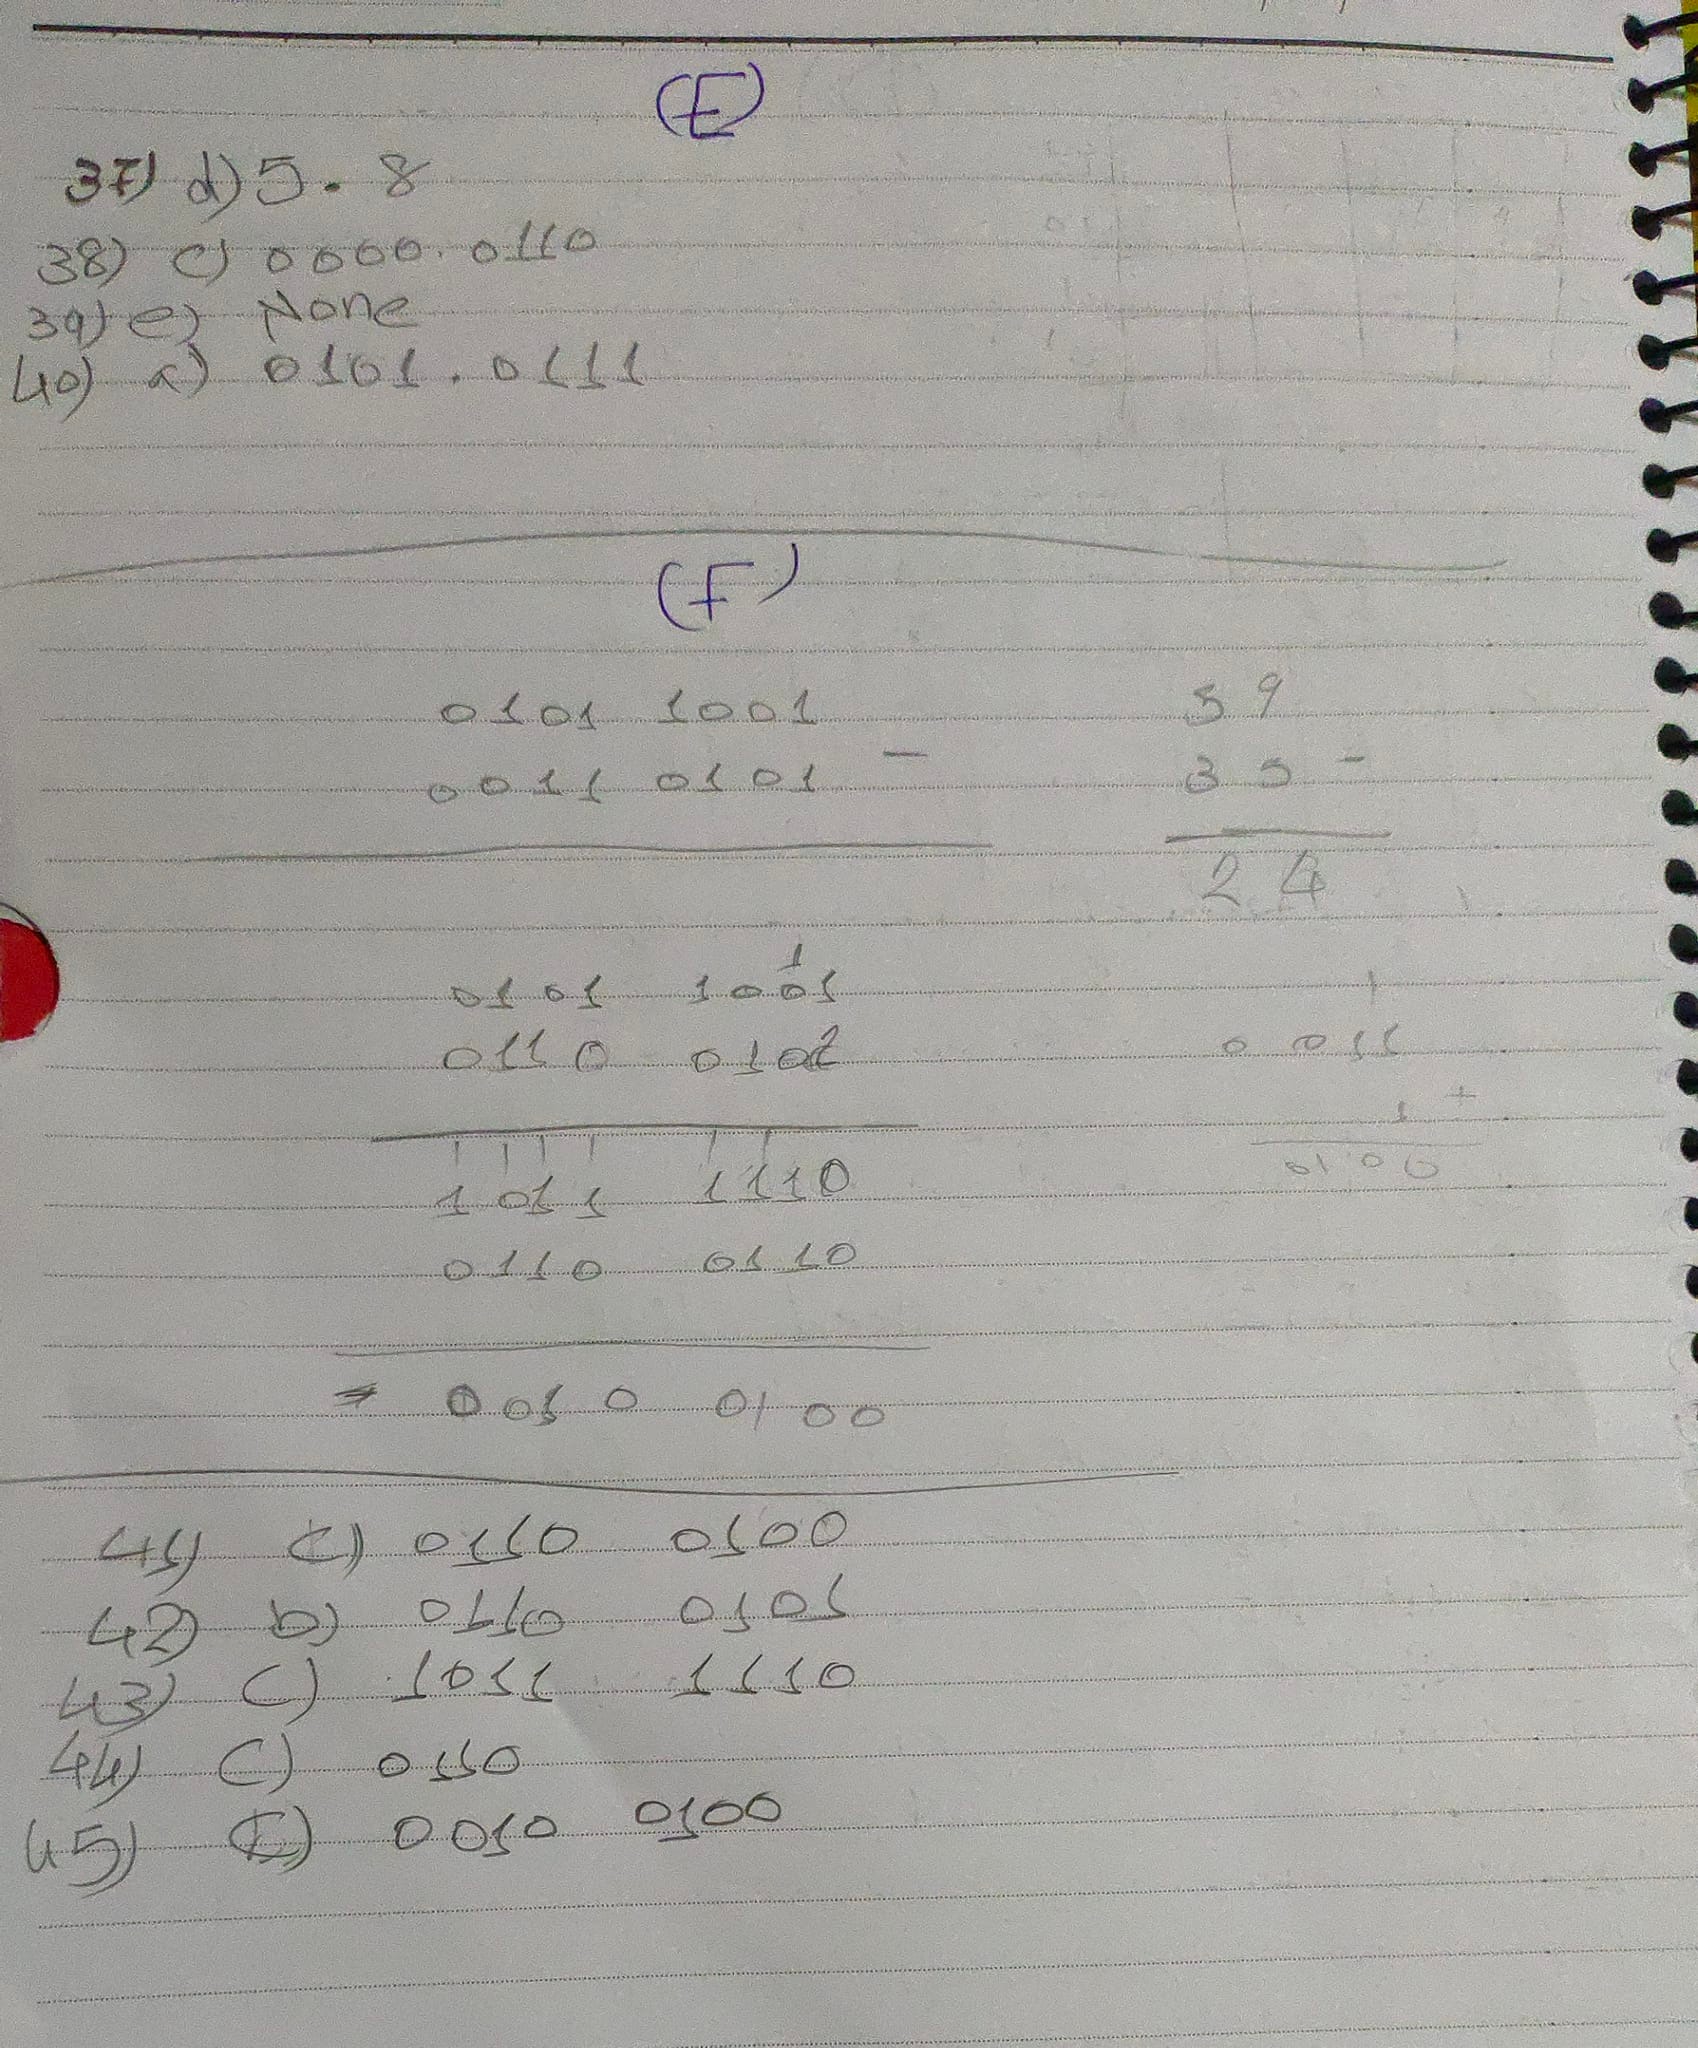 (E)
37) d) 5. 8
38) c) 0000. 0110
39) e) None
40) a) 0101. 0111
(F)
0101 1001 59
0011 0101 - 35 -
24
1
0101 1001 1
0110 0101 0011
1 +
1011 1110 0100
0110 0110
= 0010 0100
41) C) 0110 0100
42) b) 0110 0101
43) C) 1011 1110
44) C) 0110
45) E) 0010 0100